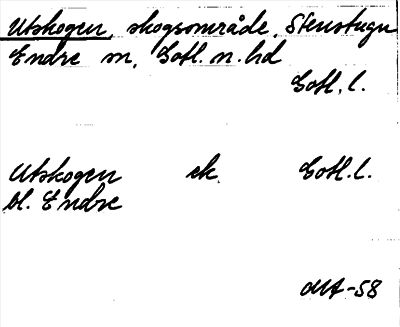 Utskogen, skogsområde, Stenstugu
Endre sn, Gotl. n. hd
Gotl. l.
Utskogen ek. Gotl. l.
bl. Endre
MA-58